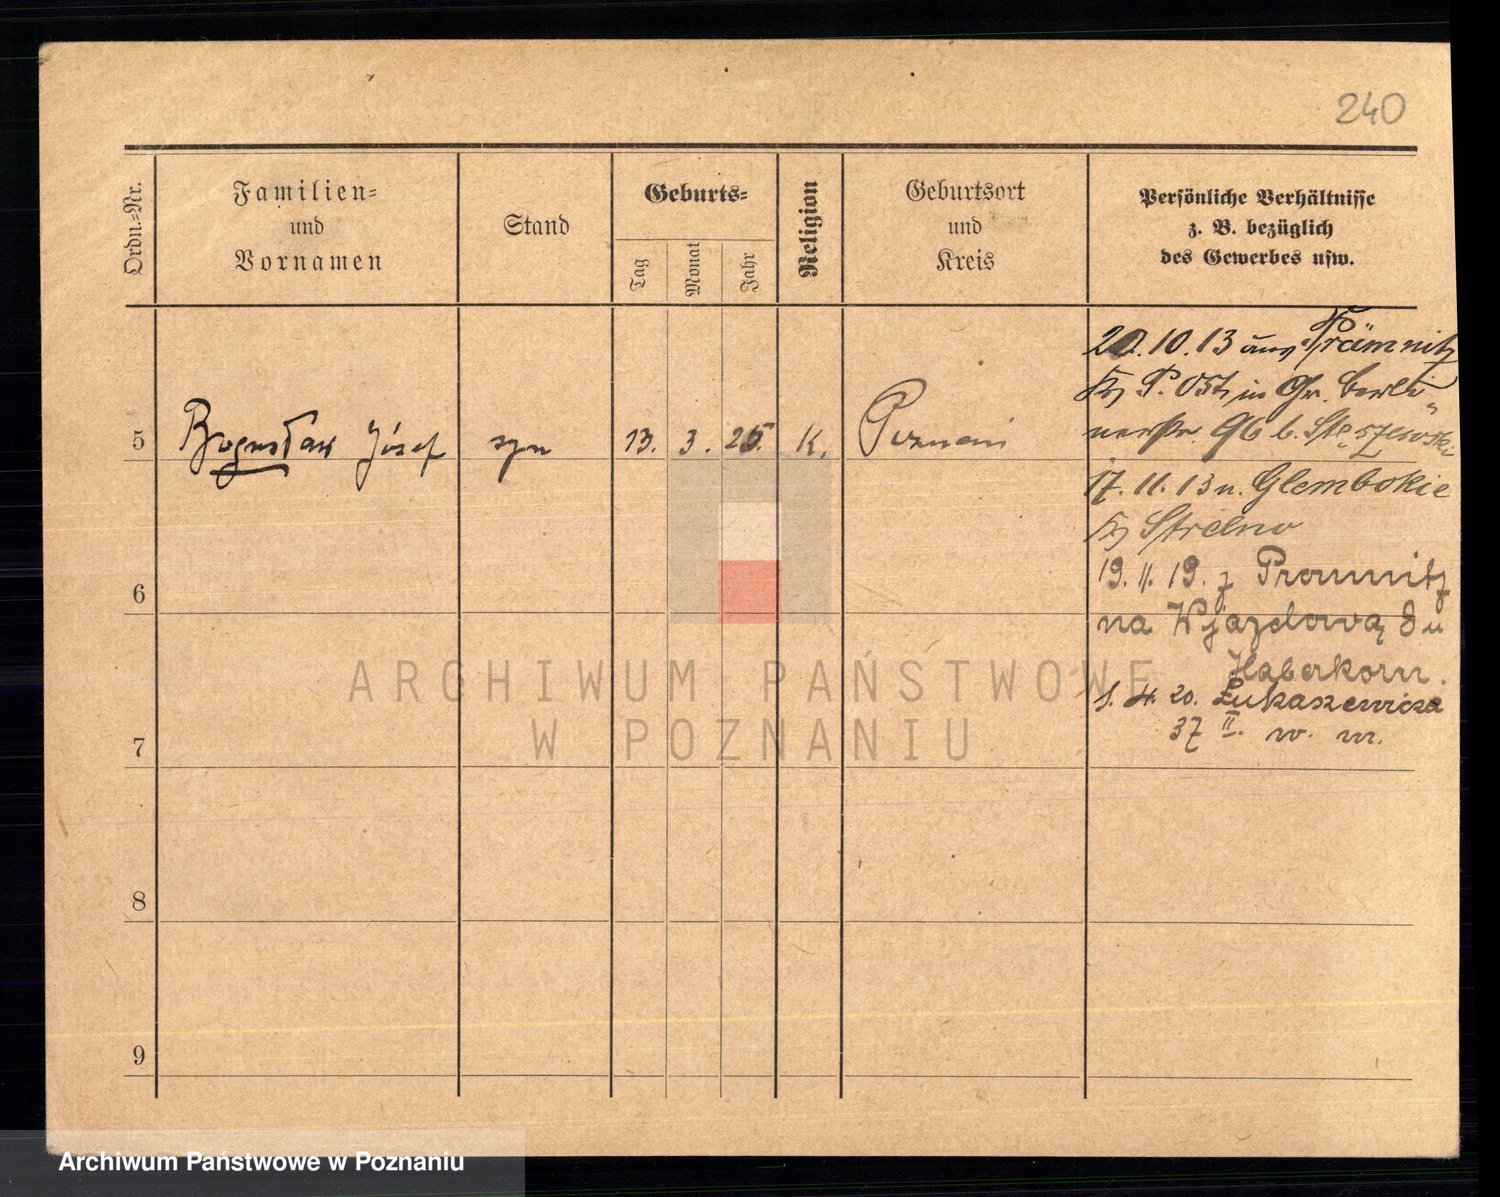 240
Ordn.=Nr.
Familien=
und
Vornamen
Stand
Geburts=
Tag
Monat
Jahr
Religion
Geburtsort
und
Kreis
Persönliche Verhältnisse
z. B. bezüglich
des Gewerbes usw.
5
Bogusław Józef
syn
13.
3.
25.
K.
Poznań
20.10.13 aus
P. Ost in Gr. Berli„
nerstr. 96 b.
17.11.13 n. Glembokie
Strelno
19.11.19. z
na Wjazdową 8 u
Haberkorn.
1.4.20. Łukaszewicza
37 II. w. m.
6
7
8
9
ARCHIWUM PAŃSTWOWE
W POZNANIU
Archiwum Państwowe w Poznaniu